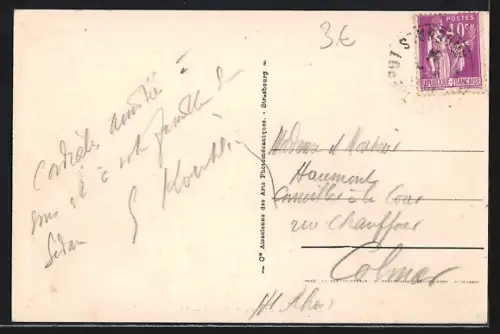 3€
POSTES
40c
RÉPUBLIQUE FRANÇAISE
Cordiales amitiés à
vous et à votre famille de
Sedan
Cie Alsacienne des Arts Photomécaniques. - Strasbourg
Madame et Monsieur
Haumont
Conseiller à la Cour
rue Chauffour
Colmar
Ht Rhin